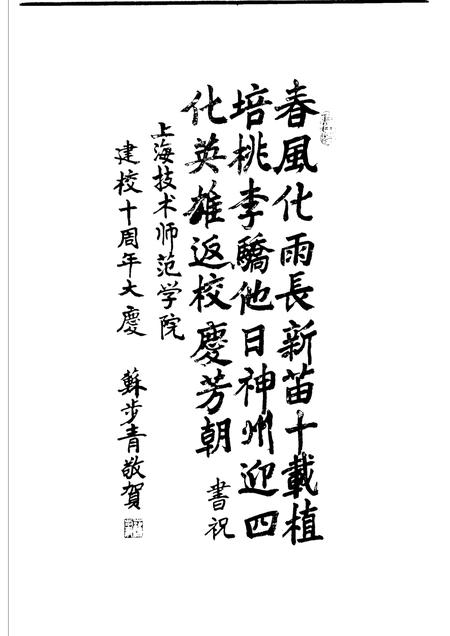 春風化雨長新苗十載植
培桃李驕他日神州迎四
化英雄返校慶芳朝 書祝
上海技术师范学院
建校十周年大慶 蘇步青敬賀